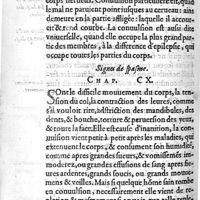 corps nerueux. Conuulsion particuliere est, quand
le mal ne paruient point iusques au cerueau: ains
demeure en la partie affligée: laquelle il accour-
cit & rend courbe. La conuulsion est aussi dite
vniuerselle, quand elle occupe la plus grand par-
tie des membres, à la difference d'epilepsie, qui
occupe toutes les parties du corps.
Signes de spasme.
CHAP. CX.
SOnt le difficile mouuement du corps, la ten-
sion du col, la contraction des leures, comme
s'il vouloit rire, astriction des mandibules, des
dents, & bouche, torture & peruersion des yeux,
& toute la face. Elle est faicte d'inanition, la con-
uulsion vient petit à petit apres les maladies, qui
ont extenué le corps, & consumé son humidité,
comme apres grandes sueurs, & vomissemens im-
moderez, ou grand effusions de sang apres fie-
ures ardentes, grands soucis, ou grands mouue-
mens & veilles. Mais si quelque homme sain tombe
en conuulsion, necessairement elle vient de re-